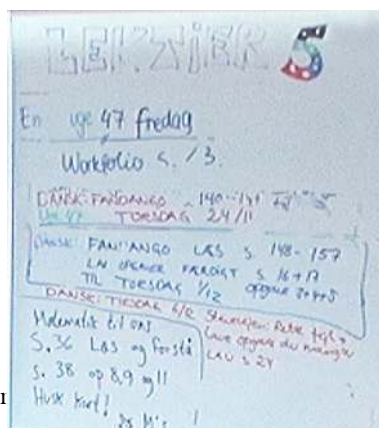 LEKTiER 5
En uge 47 fredag
Workfolio s. /3.
DANSK: FANDANGO 140-141
TORSDAG 24/11
DANSK: FANDANGO LÆS s 148-157
LAV OPGAVER FÆRDIGT s 16+17
TIL TORSDAG 1/12 opgave 3+4+5
DANSK: TIRSDAG 6/12
Lave opgave du mangler
LAV s 24
Matematik til ons
S. 36 Læs og forstå
s. 38 op 8,9 og 11
Husk kort!